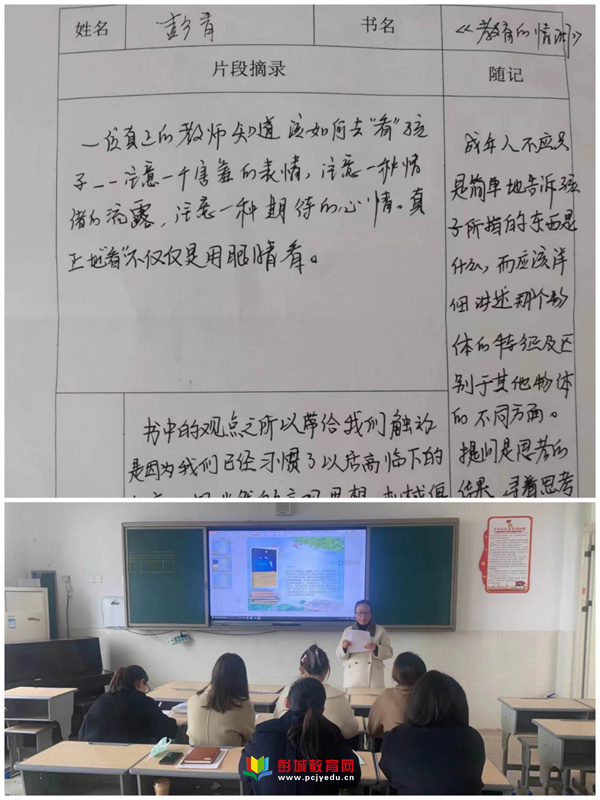 姓名
彭育
书名
《教育的情调》
片段摘录
随记
一位真正的教师知道该如何去“看”孩
子——注意一个害羞的表情，注意一种情
绪的流露，注意一种期待的心情。真
正地“看”不仅仅是用眼睛看。
成年人不应只
是简单地告诉孩
子所指的东西是
什么，而应该详
细讲述那个物
体的特征及区
别于其他物体
的不同方面。
提问是思考的
结果，寻着思考
书中的观点之所以带给我们触动
是因为我们已经习惯了以居高临下的
彭城教育网
www.pcjyedu.cn